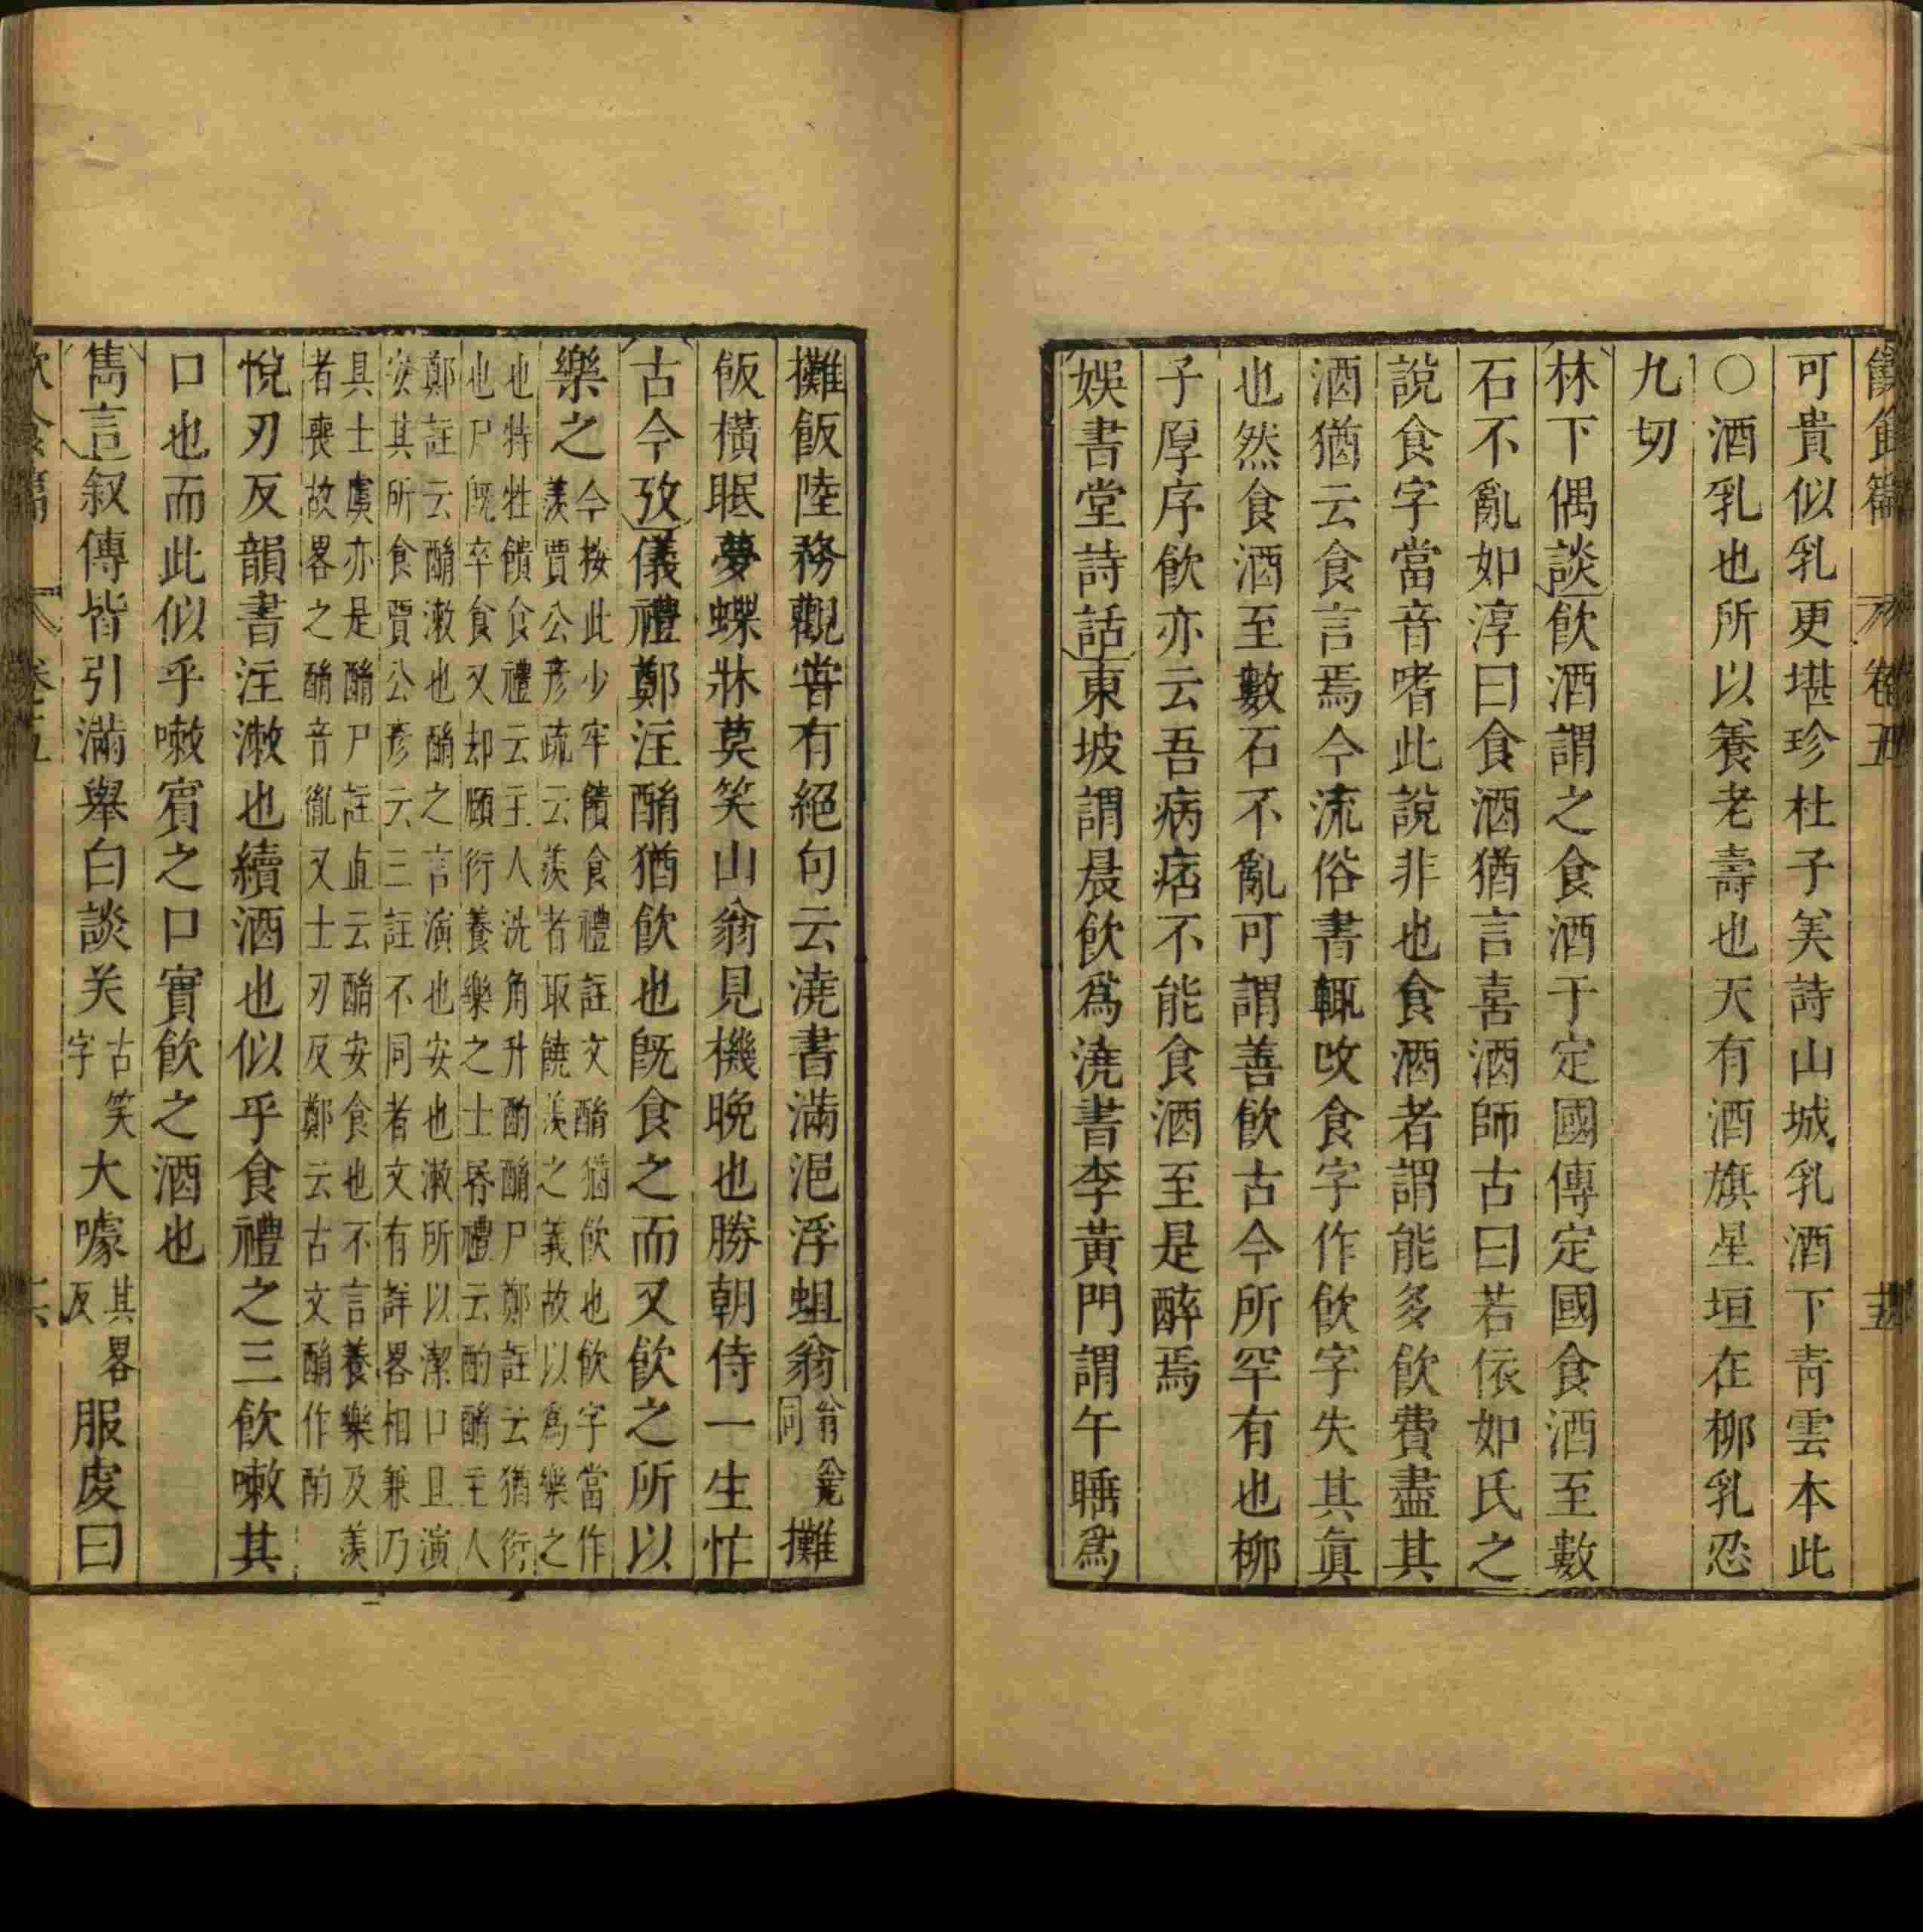 飲食篇 卷五
可貴似乳更堪珍杜子美詩山城乳酒下青雲本此
○酒乳也所以養老壽也天有酒旗星垣在柳乳忍
九切
林下偶談飲酒謂之食酒于定國傳定國食酒至數
石不亂如淳曰食酒猶言喜酒師古曰若依如氏之
說食字當音嗜此說非也食酒者謂能多飲費盡其
酒猶云食言焉今流俗書輒改食字作飲字失其眞
也然食酒至數石不亂可謂善飲古今所罕有也柳
子厚序飲亦云吾病痞不能食酒至是醉焉
娛書堂詩話東坡謂晨飲爲澆書李黃門謂午睡爲
攤飯陸務觀嘗有絕句云澆書滿浥浮蛆翁同攤
飯橫眠夢蝶牀莫笑山翁見機晚也勝朝侍一生忙
古今攷儀禮鄭注酳猶飲也旣食之而又飲之所以
樂之
今按此少牢饋食禮註文酳猶飲也飲字當作
羨賈公彥疏云羨者取饒羨之義故以爲樂之
也特牲饋食禮云主人洗角升酌酳尸鄭註云猶衍
也尸旣卒食又却頤衍養樂之士昏禮云酌酳主人
鄭註云酳漱也酳之言演也安也漱所以潔口且演
安其所食賈公彥云三註不同者文有詳畧相兼乃
具士虞亦是酳尸註直云酳安食也不言養樂及羨
者喪故畧之酳音胤又士刃反鄭云古文酳作酌
悅刃反韻書注漱也續酒也似乎食禮之三飲嗽其
口也而此似乎嗽賓之口實飲之酒也
雋言叙傳皆引滿舉白談关
古笑
字
大噱
其畧
反
服虔曰
飲食篇 卷五